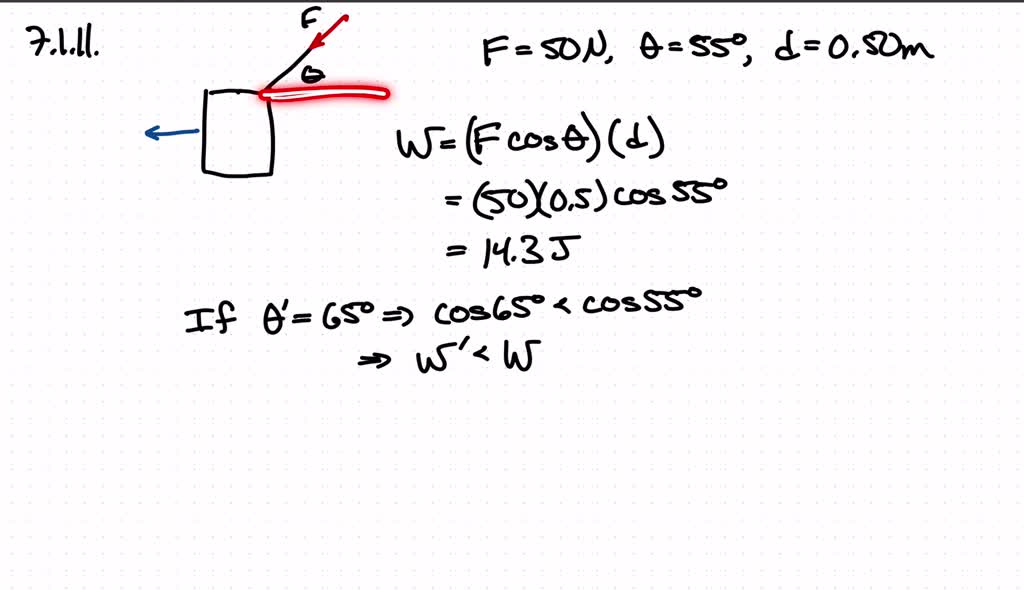 7.1.11.
F
θ
F = 50N, θ = 55°, d = 0.50m
W = (F cos θ)(d)
= (50)(0.5) cos 55°
= 14.3 J
If θ' = 65° ⇒ cos 65° < cos 55°
⇒ W' < W